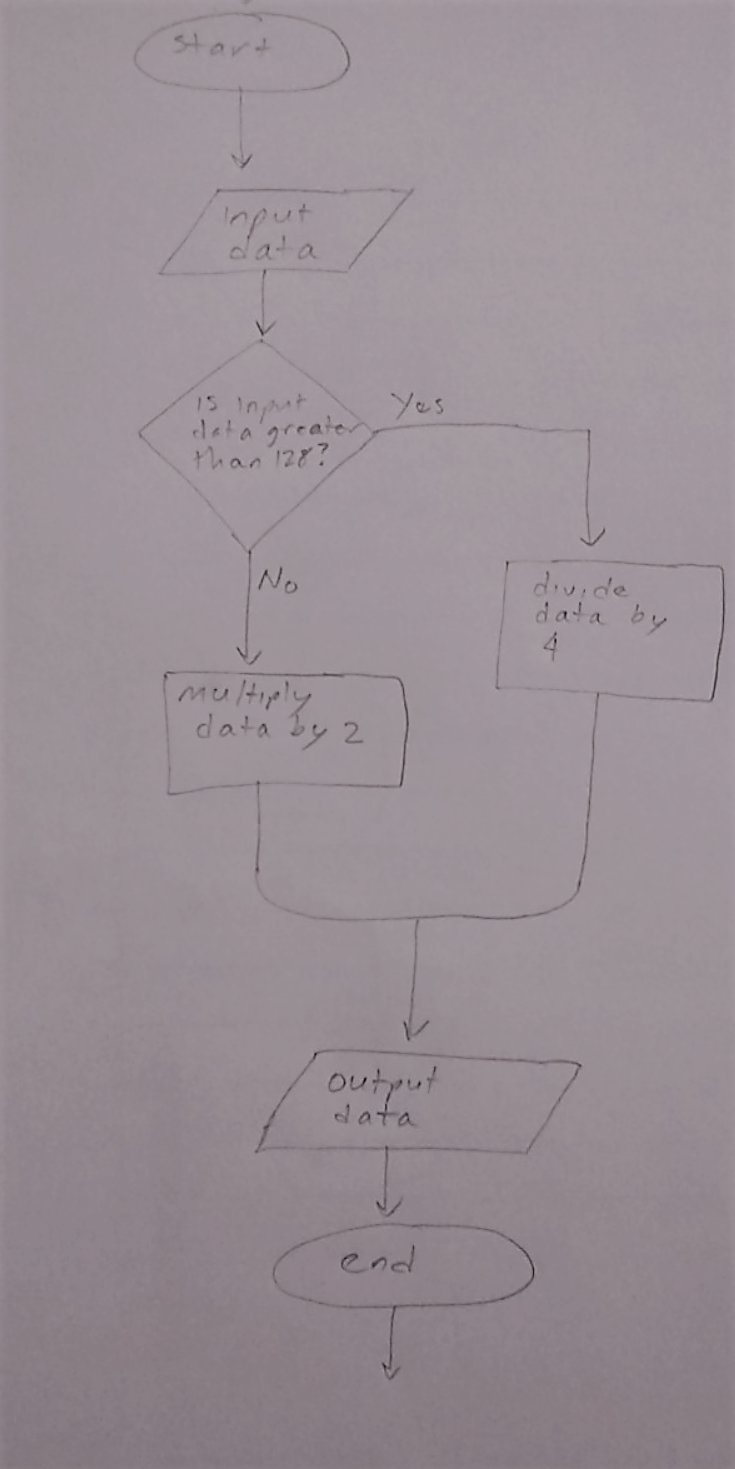 start
input
data
is input
data greater
than 128?
Yes
No
divide
data by
4
multiply
data by 2
output
data
end